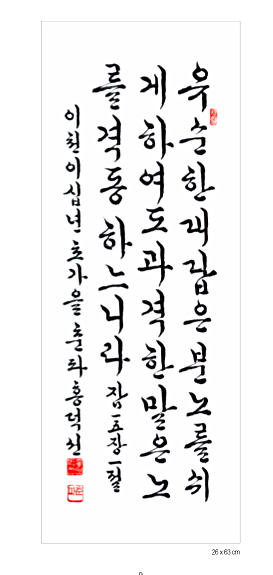 유순한대답은분노를쉬
게하여도과격한말은노
를격동하느니라 잠一五장一절
이천이십년초가을춘파홍덕선
26 x 63 cm